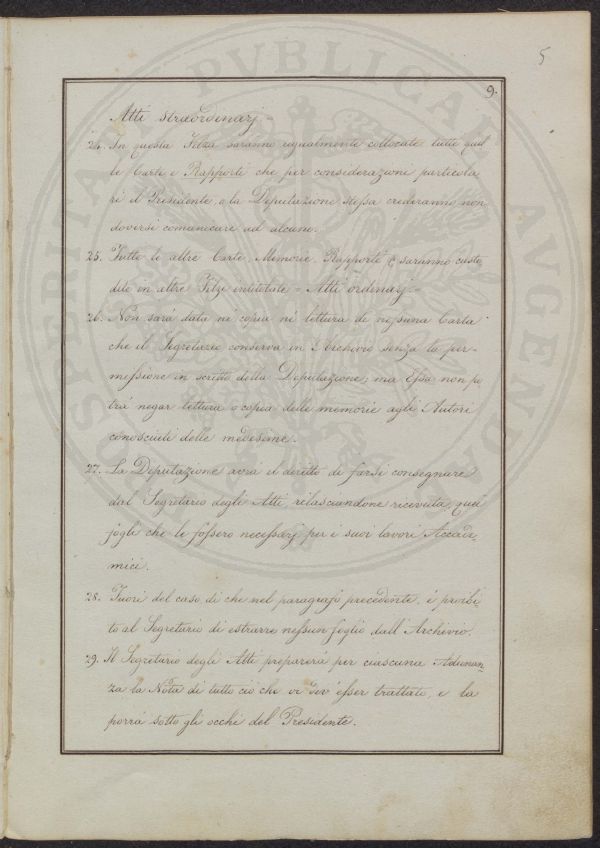 5
9.
Atti straordinarj =
24. In questa Filza saranno egualmente collocate tutte quel
le Carte e Rapporti che per considerazione particola
ri il Presidente, o la Deputazione stessa crederanno non
doversi comunicare ad alcuno.
25. Tutte le altre Carte, Memorie, Rapporti & saranno custo
dite in altre Filze intitolate = Atti ordinarj =
26. Non sarà data né copia né lettura di nessuna Carta
che il Segretario conserva in Archivio senza la per-
messione in scritto della Deputazione; ma Essa non po
trà negar lettura o copia delle memorie agli Autori
conosciuti delle medesime.
27. La Deputazione avrà il diritto di farsi consegnare
dal Segretario degli Atti rilasciandone ricevuta, quei
fogli che le fossero necessarj per i suoi lavori Accade-
mici.
28. Fuori del caso, di che nel paragrafo precedente, è proibi
to al Segretario di estrarre nessun foglio dall'Archivio.
29. Il Segretario degli Atti preparerà per ciascuna Adunan-
za la Nota di tutto ciò che vi dev'esser trattato, e la
porrà sotto gli occhi del Presidente.
PROSPERITATI PVBLICAE AVGENDAE